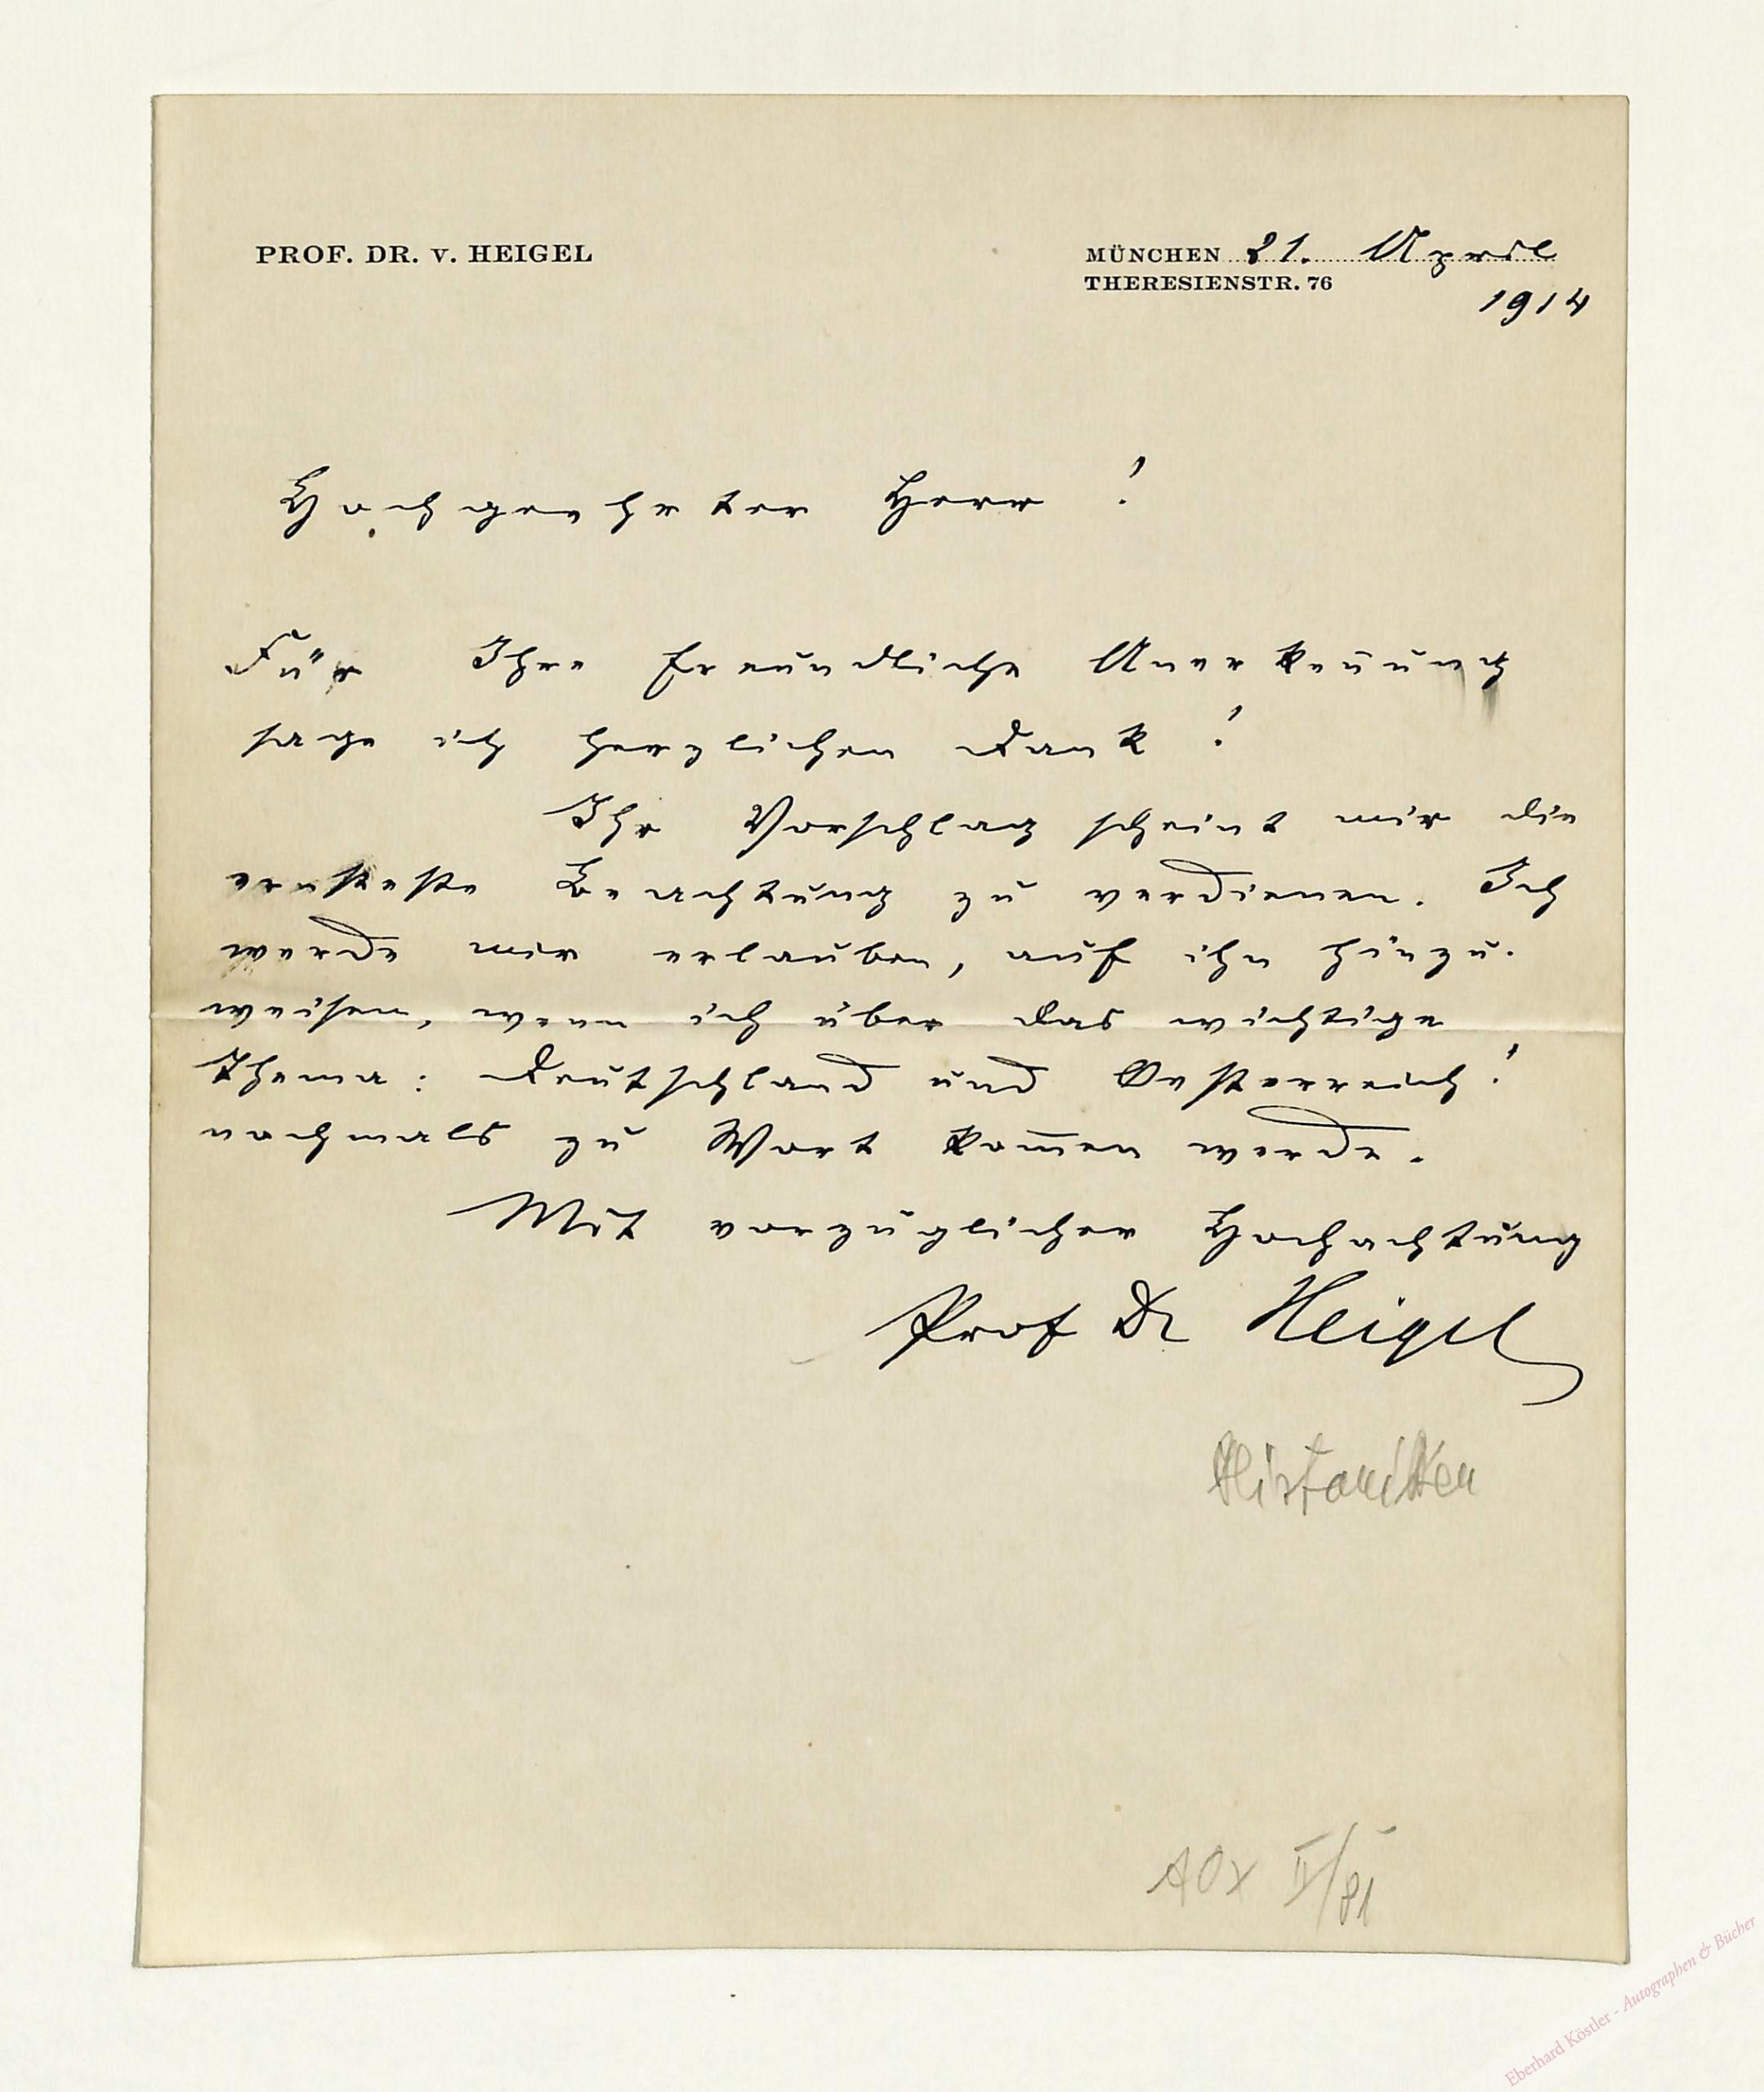 PROF. DR. v. HEIGEL
MÜNCHEN 21. April
THERESIENSTR. 76
1914
Hochgeehrter Herr!
Für Ihre freundliche Anerkeñung
sage ich herzlichen Dank!
Ihr Vorschlag scheint mir die
ernsteste Beachtung zu verdienen. Ich
werde mir erlauben, auf ihn hinzu-
weisen, wenn ich über das wichtige
Thema: Deutschland und Oesterreich!
nochmals zu Wort kom̄en werde.
Mit vorzüglicher Hochachtung
Prof Dr Heigel
II/81
Eberhard Köstler - Autographen & Bücher